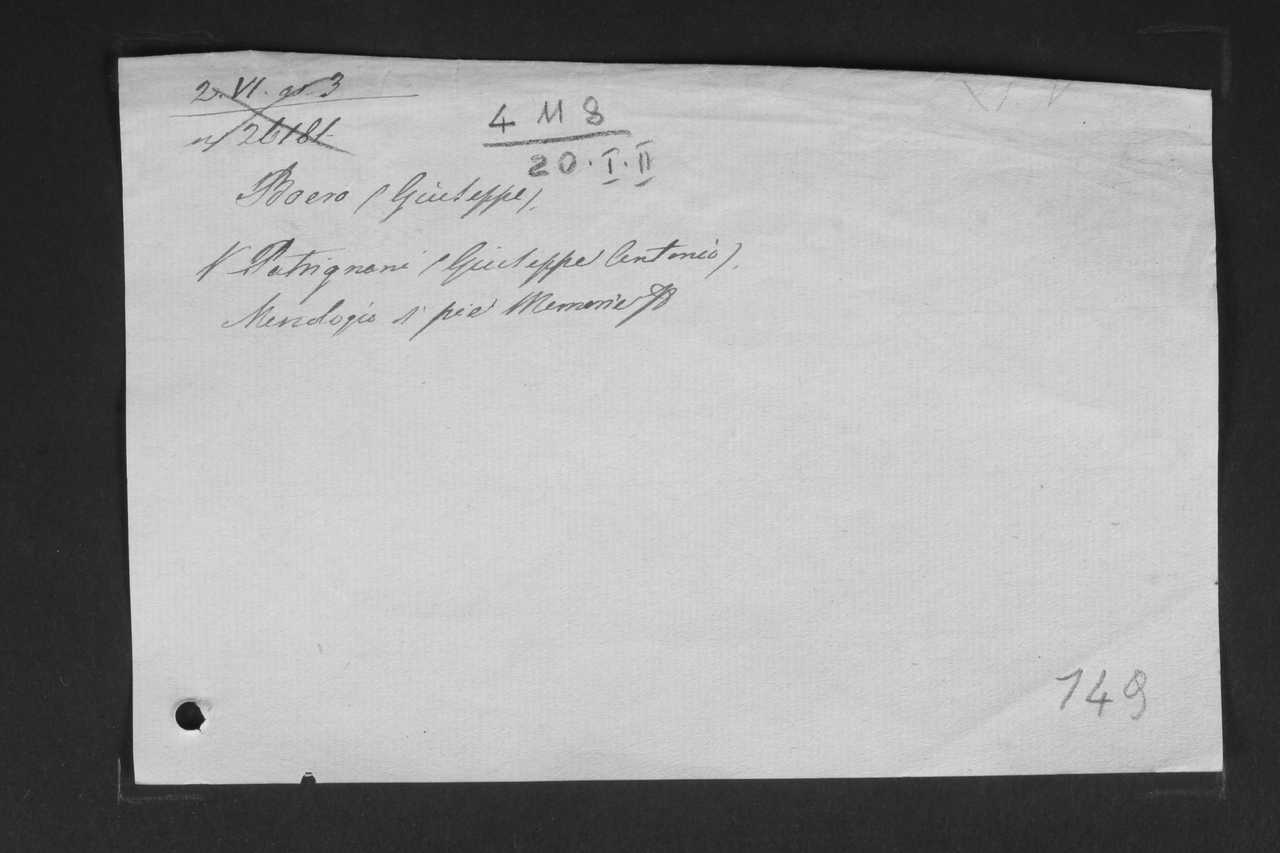 2. VI. gr. 3
4 M 8
nº 26181
20. I. II
Boero (Giuseppe).
V Patrignani (Giuseppe Antonio).
Menologio di pie Memorie
149